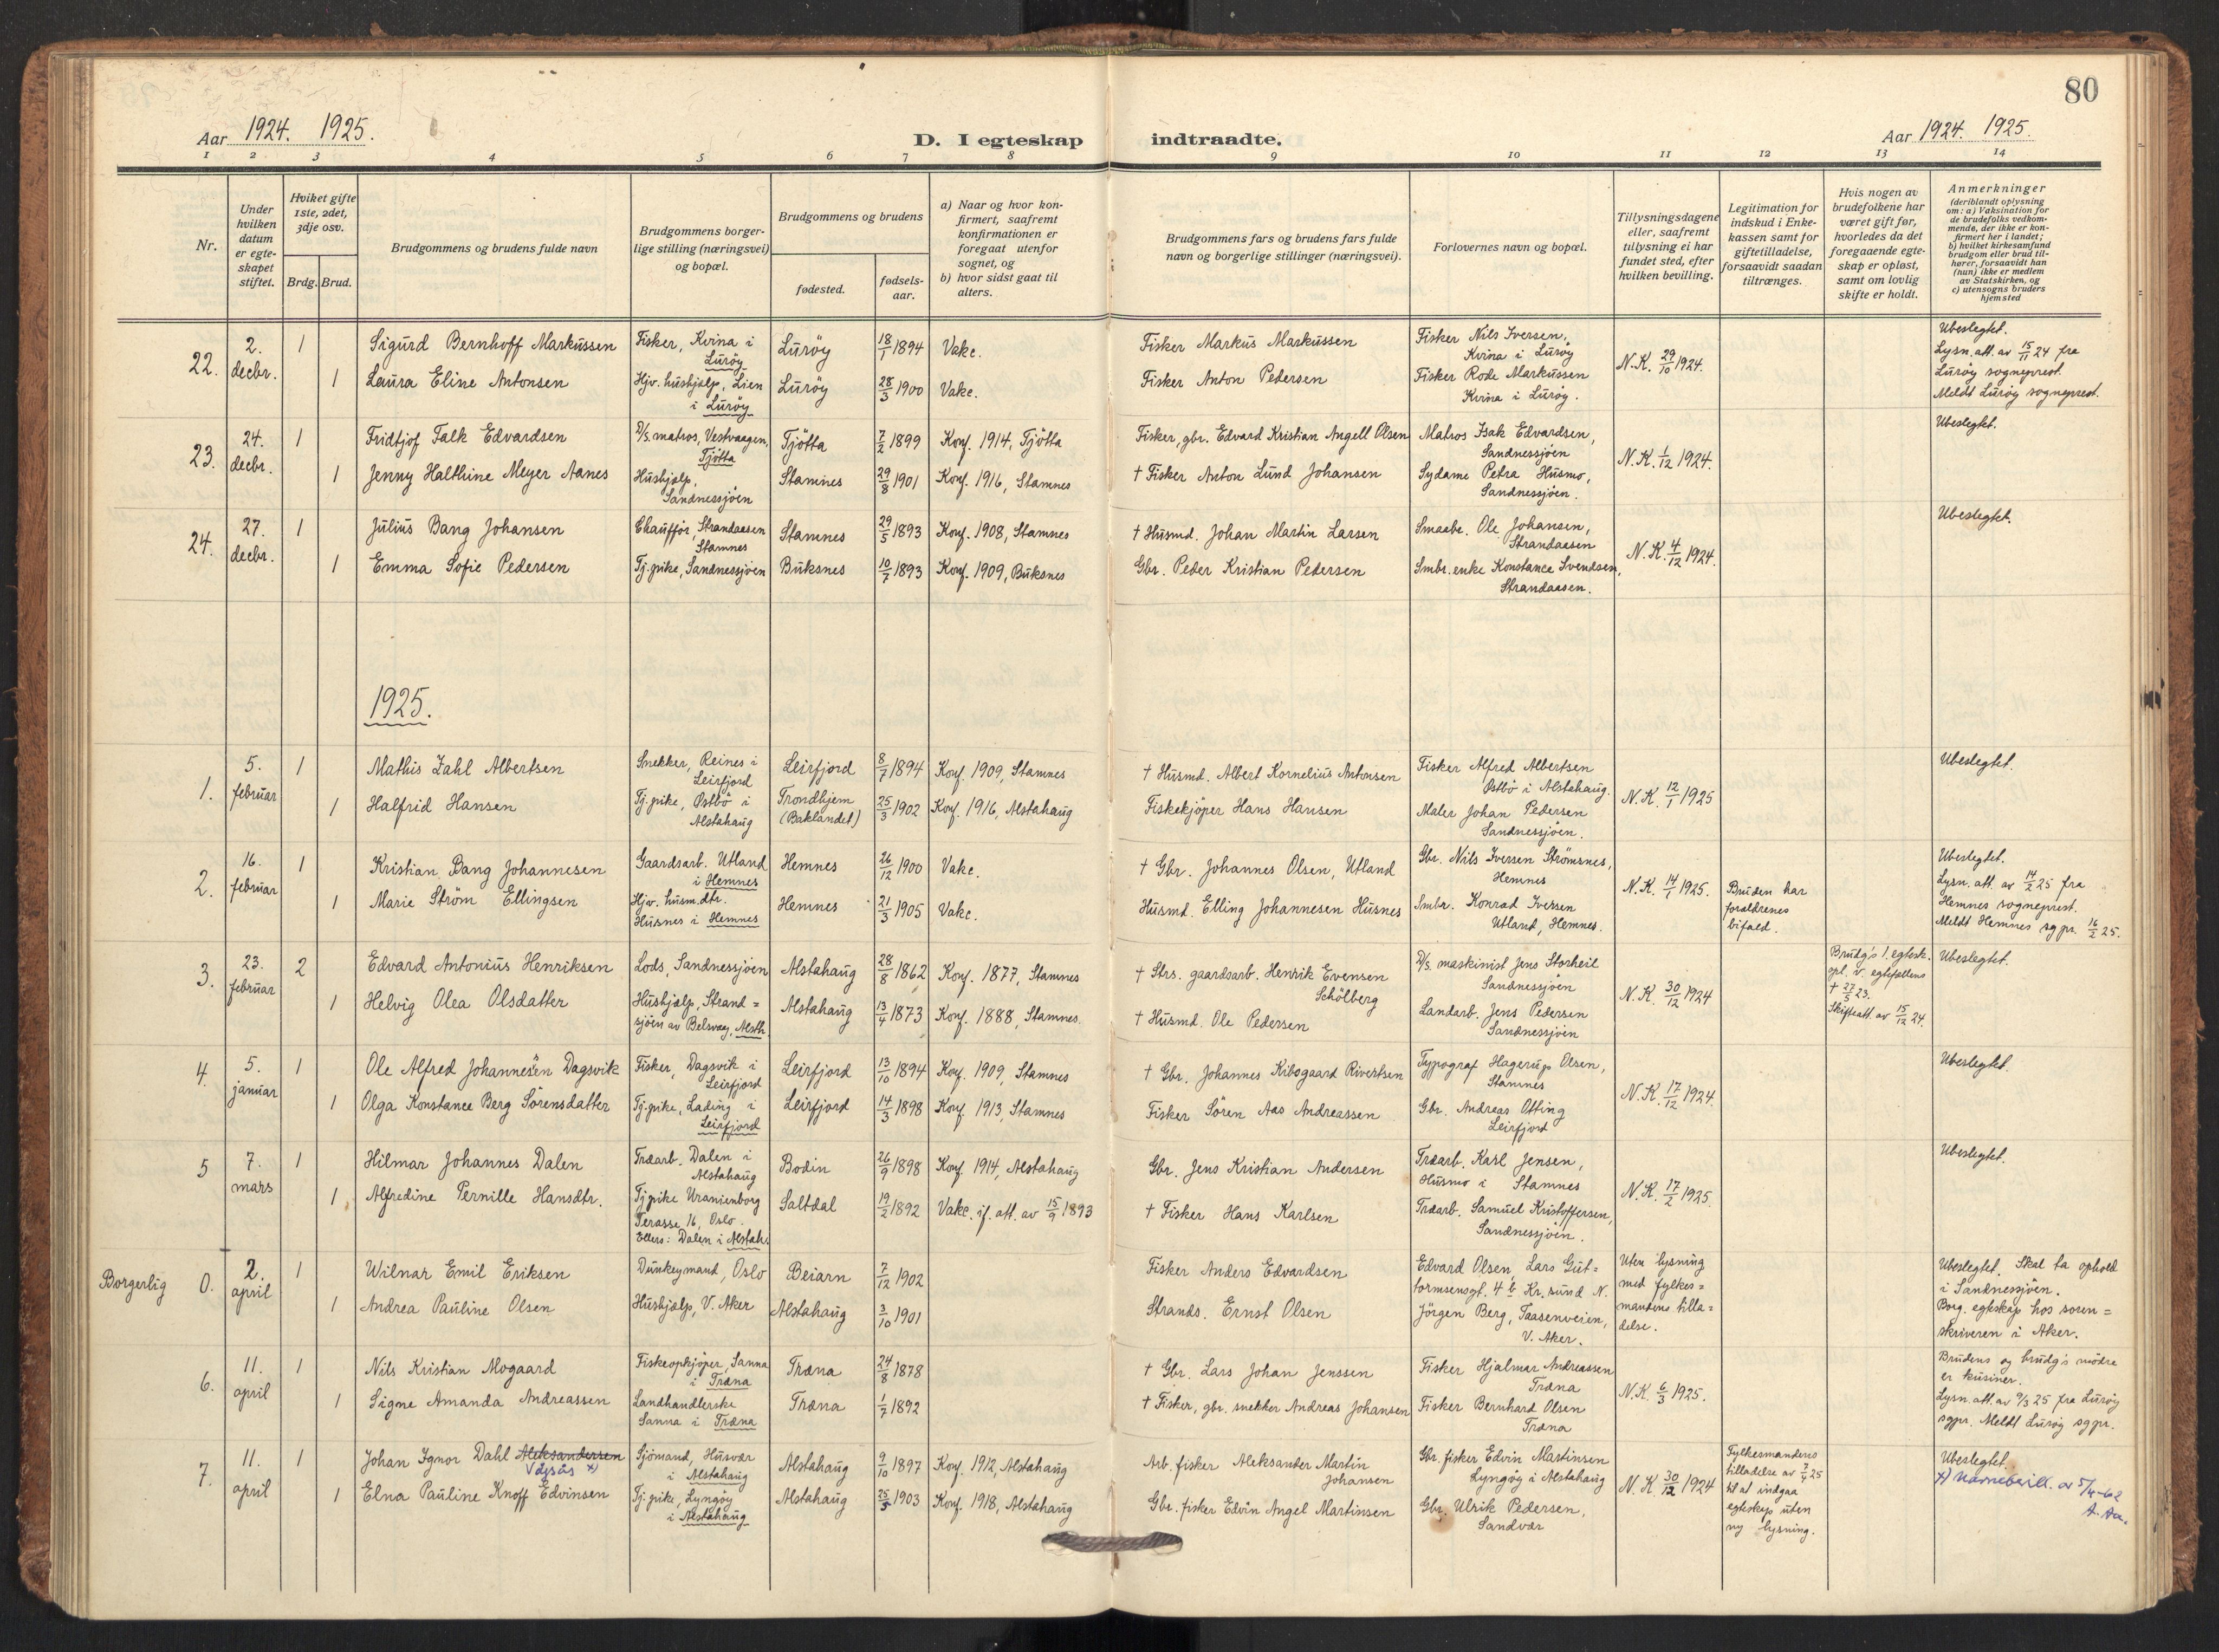 80
Aar 1924. 1925.
D. I egteskap indtraadte.
Aar 1924. 1925.
1 2 3 4 5 6 7 8 9 10 11 12 13 14
Nr.
Under hvilken datum er egte-skapet stiftet.
Hviket gifte 1ste, 2det, 3dje osv.
Brdg. Brud.
Brudgommens og brudens fulde navn
Brudgommens borger-lige stilling (næringsvei) og bopæl.
Brudgommens og brudens
fødested.
fødsels-aar.
a) Naar og hvor kon-firmert, saafremt konfirmationen er foregaat utenfor sognet, og
b) hvor sidst gaat til alters.
Brudgommens fars og brudens fars fulde navn og borgerlige stillinger (næringsvei).
Forlovernes navn og bopæl.
Tillysningsdagene eller, saafremt tillysning ei har fundet sted, efter hvilken bevilling.
Legitimation for indskud i Enke-kassen samt for giftetilladelse, forsaavidt saadan tiltrænges.
Hvis nogen av brudefolkene har været gift før, hvorledes da det foregaaende egte-skap er opløst, samt om lovlig skifte er holdt.
Anmerkninger (deriblandt oplysning om: a) Vaksination for de brudefolks vedkom-mende, der ikke er kon-firmert her i landet; b) hvilket kirkesamfund brudgom eller brud til-hører, forsaavidt han (hun) ikke er medlem av Statskirken, og c) utensogns bruders hjemsted
22. 2. decbr. 1 Sigurd Bernhoff Markussen Fisker, Kvina i Lurøy Lurøy 18/1 1894 Vakc. Fisker Markus Markussen Fisker Nils Iversen, Kvina i Lurøy N.K. 29/10 1924. Ubeslegtet. Lysn. att. av 15/11 24 fra Lurøy sogneprest. Meldt Lurøy sogneprest.
1 Laura Eline Antonsen Hjv. hushjalp, Lien i Lurøy Lurøy 28/3 1900 Vakc. Fisker Anton Pedersen Fisker Rode Markussen Kvina i Lurøy.
23. 24. decbr. 1 Fridtjof Falk Edvardsen D/s. matros, Vestvaagen, Tjøtta Tjøtta 7/2 1899 Konf. 1914, Tjøtta Fisker, gbr. Edvard Kristian Angell Olsen Matros Isak Edvardsen, Sandnessjøen N.K. 1/12 1924. Ubeslegtet.
1 Jenny Halthine Meyer Aanes Hushjalp, Sandnessjøen Stamnes 29/8 1901 Konf. 1916, Stamnes † Fisker Anton Lund Johansen Sydame Petra Husmo, Sandnessjøen.
24. 27. decbr. 1 Julius Bang Johansen Chauffør, Strandaasen Stamnes Stamnes 29/5 1893 Konf. 1908, Stamnes † Husmd. Johan Martin Larsen Smaabr. Ole Johansen, Strandaasen N.K. 4/12 1924. Ubeslegtet.
1 Emma Sofie Pedersen Tj.pike, Sandnessjøen Buksnes 10/7 1893 Konf. 1909, Buksnes Gbr. Peder Kristian Pedersen Smbr. enke Konstance Svendsen, Strandaasen.
1925.
1. 5. februar 1 Mathis Zahl Albertsen Snekker, Reines i Leirfjord Leirfjord 8/7 1894 Konf. 1909, Stamnes † Husmd. Albert Kornelius Antonsen Fisker Alfred Albertsen Østbø i Alstahaug. N.K. 12/1 1925 Ubeslegtet.
1 Halfrid Hansen Tj.pike, Østbø i Alstahaug Trondhjem (Baklandet) 25/3 1902 Konf. 1916, Alstahaug Fiskekjøper Hans Hansen Maler Johan Pedersen Sandnessjøen.
2. 16. februar 1 Kristian Bang Johannesen Gaardsarb. Utland i Hemnes Hemnes 26/12 1900 Vakc. † Gbr. Johannes Olsen, Utland Gbr. Nils Iversen Strømsnes, Hemnes N.K. 14/1 1925. Bruden har forældrenes bifald. Ubeslegtet. Lysn. att. av 14/2 25 fra Hemnes sogneprest. Meldt Hemnes sgpr. 16/2 25.
1 Marie Strøm Ellingsen Hjv. husm.dtr. Husnes i Hemnes Hemnes 21/3 1905 Vakc. Husmd. Elling Johannesen Husnes Smbr. Konrad Iversen Utland, Hemnes.
3. 23. februar 2 Edvard Antonius Henriksen Lods, Sandnessjøen Alstahaug 28/8 1862 Konf. 1877, Stamnes † Strs. gaardsarb. Henrik Evensen Schølberg D/s. maskinist Jens Storheil Sandnessjøen N.K. 30/12 1924 Brudg's 1. egtesk. opl. v. egtefællens † 27/5 23. Skifteatt. av 15/12 24. Ubeslegtet.
1 Helvig Olea Olsdatter Hushjalp, Strand=sjøen av Belsvaag, Alsth. Alstahaug 13/4 1873 Konf. 1888, Stamnes. † Husmd. Ole Pedersen Landarb. Jens Pedersen Sandnessjøen
4. 5. januar 1 Ole Alfred Johannesen Dagsvik Fisker, Dagsvik i Leirfjord Leirfjord 13/10 1894 Konf. 1909, Stamnes † Gbr. Johannes Kibsgaard Rivertsen Typograf Hagerup Olsen, Stamnes N.K. 17/12 1924. Ubeslegtet.
1 Olga Konstance Berg Sørensdatter Tj.pike, Lading i Leirfjord Leirfjord 14/3 1898 Konf. 1913, Stamnes Fisker Søren Aas Andreassen Gbr. Andreas Otting Leirfjord
5 7. mars 1 Hilmar Johannes Dalen Træarb. Dalen i Alstahaug Bodin 26/9 1898 Konf. 1914, Alstahaug Gbr. Jens Kristian Andersen Træarb. Karl Jensen, Husmo i Stamnes N.K. 17/2 1925. Ubeslegtet.
1 Alfredine Pernille Hansdtr. Tj.pike Uranienborg Terasse 16, Oslo. Ellers: Dalen i Alstah. Saltdal 19/2 1892 Vakc. if. att. av 15/9 1893 † Fisker Hans Karlsen Træarb. Samuel Kristoffersen, Sandnessjøen.
Borgerlig 0. 2. april 1 Wilnar Emil Eriksen Dunkeymand, Oslo Beiarn 7/12 1902 Fisker Anders Edvardsen Edvard Olsen, Lars Gut=tormsensgt. 4 b Kr.sund N. Uten lysning med fylkes=mandens tilla=delse. Ubeslegtet. Skal ta ophold i Sandnessjøen. Borg. egteskap hos soren=skriveren i Aker.
1 Andrea Pauline Olsen Hushjalp, V. Aker Alstahaug 3/10 1901 Strands. Ernst Olsen Jørgen Berg, Taasenveien, V. Aker.
6. 11. april 1 Nils Kristian Mogaard Fiskeopkjøper, Sanna i Træna Træna 24/8 1878 † Gbr. Lars Johan Jenssen Fisker Hjalmar Andreassen Træna N.K. 6/3 1925. Brudens og brudg's mødre er kusiner. Lysn. att. av 9/3 25 fra Lurøy sgpr. Meldt Lurøy sgpr.
1 Signe Amanda Andreassen Landhandlerske Sanna i Træna Træna 1/7 1892 † Fisker, gbr. snekker Andreas Johansen Fisker Bernhard Olsen Træna
7. 11. april 1 Johan Ignor Dahl Aleksandersen Vågsås x) Sjømand, Husvær i Alstahaug Alstahaug 9/10 1897 Konf. 1912, Alstahaug Arb. fisker Aleksander Martin Johansen Gbr. fisker Edvin Martinsen Lyngøy i Alstahaug N.K. 30/12 1924 Fylkesmandens tilladelse av 7/4 25 til at indgaa egteskap uten ny lysning. Ubeslegtet. x) Navnebevill. av 5/4-62
1 Elna Pauline Knoff Edvinsen Tj.pike, Lyngøy i Alstahaug Alstahaug 25/5 1903 Konf. 1918, Alstahaug Gbr. fisker Edvin Angel Martinsen Gbr. Ulrik Pedersen, Sandvær